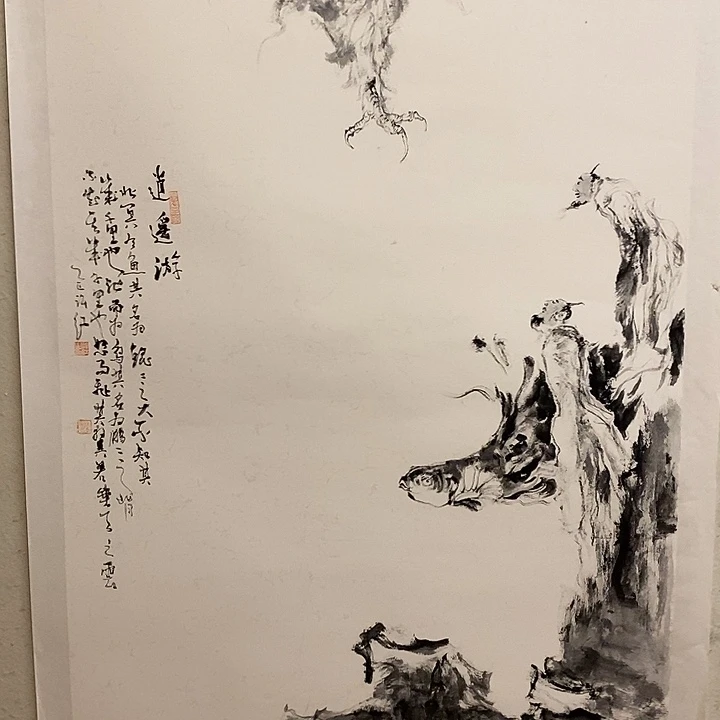 逍遙游
北冥有魚其名为鯤〻之大不知其
幾千里也化而为鳥其名为鵬〻之背
不知其幾千里也怒而飛其翼若垂天之雲